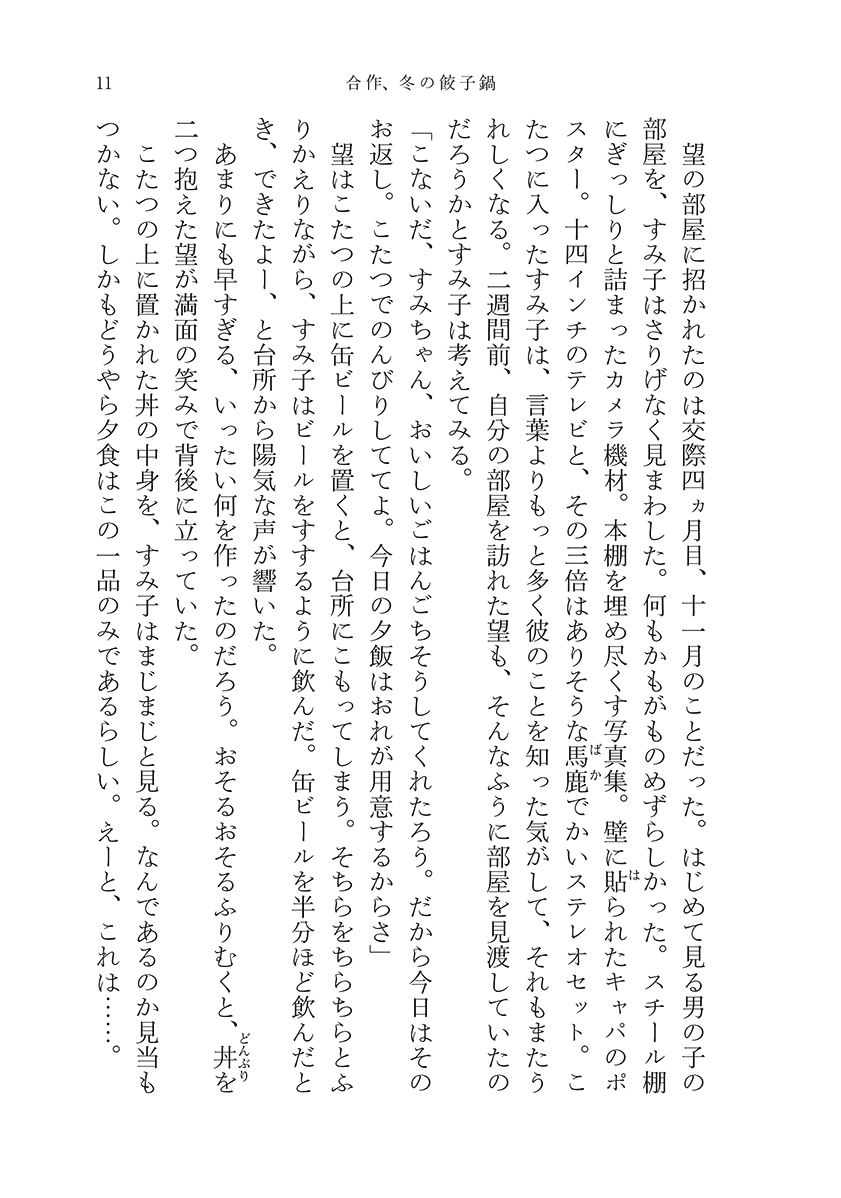 11
合作、冬の餃子鍋
望の部屋に招かれたのは交際四ヵ月目、十一月のことだった。はじめて見る男の子の
部屋を、すみ子はさりげなく見まわした。何もかもがものめずらしかった。スチール棚
にぎっしりと詰まったカメラ機材。本棚を埋め尽くす写真集。壁に貼られたキャパのポ
スター。十四インチのテレビと、その三倍はありそうな馬鹿でかいステレオセット。こ
たつに入ったすみ子は、言葉よりもっと多く彼のことを知った気がして、それもまたう
れしくなる。二週間前、自分の部屋を訪れた望も、そんなふうに部屋を見渡していたの
だろうかとすみ子は考えてみる。
「こないだ、すみちゃん、おいしいごはんごちそうしてくれたろう。だから今日はその
お返し。こたつでのんびりしててよ。今日の夕飯はおれが用意するからさ」
望はこたつの上に缶ビールを置くと、台所にこもってしまう。そちらをちらちらとふ
りかえりながら、すみ子はビールをすするように飲んだ。缶ビールを半分ほど飲んだと
き、できたよー、と台所から陽気な声が響いた。
あまりにも早すぎる、いったい何を作ったのだろう。おそるおそるふりむくと、丼を
二つ抱えた望が満面の笑みで背後に立っていた。
こたつの上に置かれた丼の中身を、すみ子はまじまじと見る。なんであるのか見当も
つかない。しかもどうやら夕食はこの一品のみであるらしい。えーと、これは……。
ばか
は
どんぶり